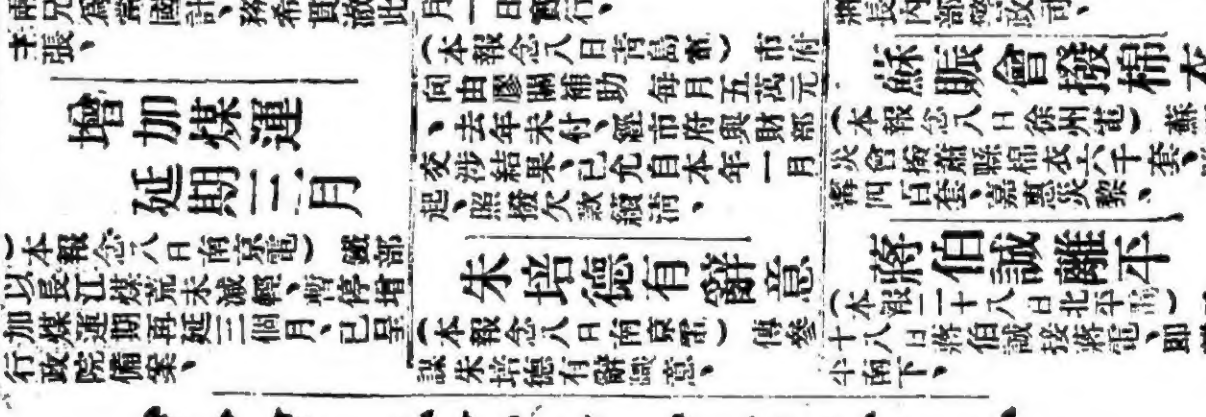 兩兄為黨國計、務希貫澈此
主張、
增加煤運
延期三月
(本報念八日南京電) 鐵部
以長江煤荒未減輕、暫停增
加煤運期再延三個月、已呈
行政院備案、
月一日實行、
(本報念八日靑島電) 市府
向由膠關補助 每月五萬元
、去年未付、經市府與財部
交涉結果、已允自本年一月
起、照撥欠款續清、
朱培德有辭意
(本報念八日南京電) 傳參
謀朱培德有辭職意、
將長內部警政司、
蘇賑會撥棉衣
(本報念八日徐州電) 蘇
災會撥蕭縣棉衣六千套、
四百套、嘉惠災黎、
蔣伯誠離平
(本報二十八日北平電)
十八日蔣伯誠接蔣電、即
平南下、